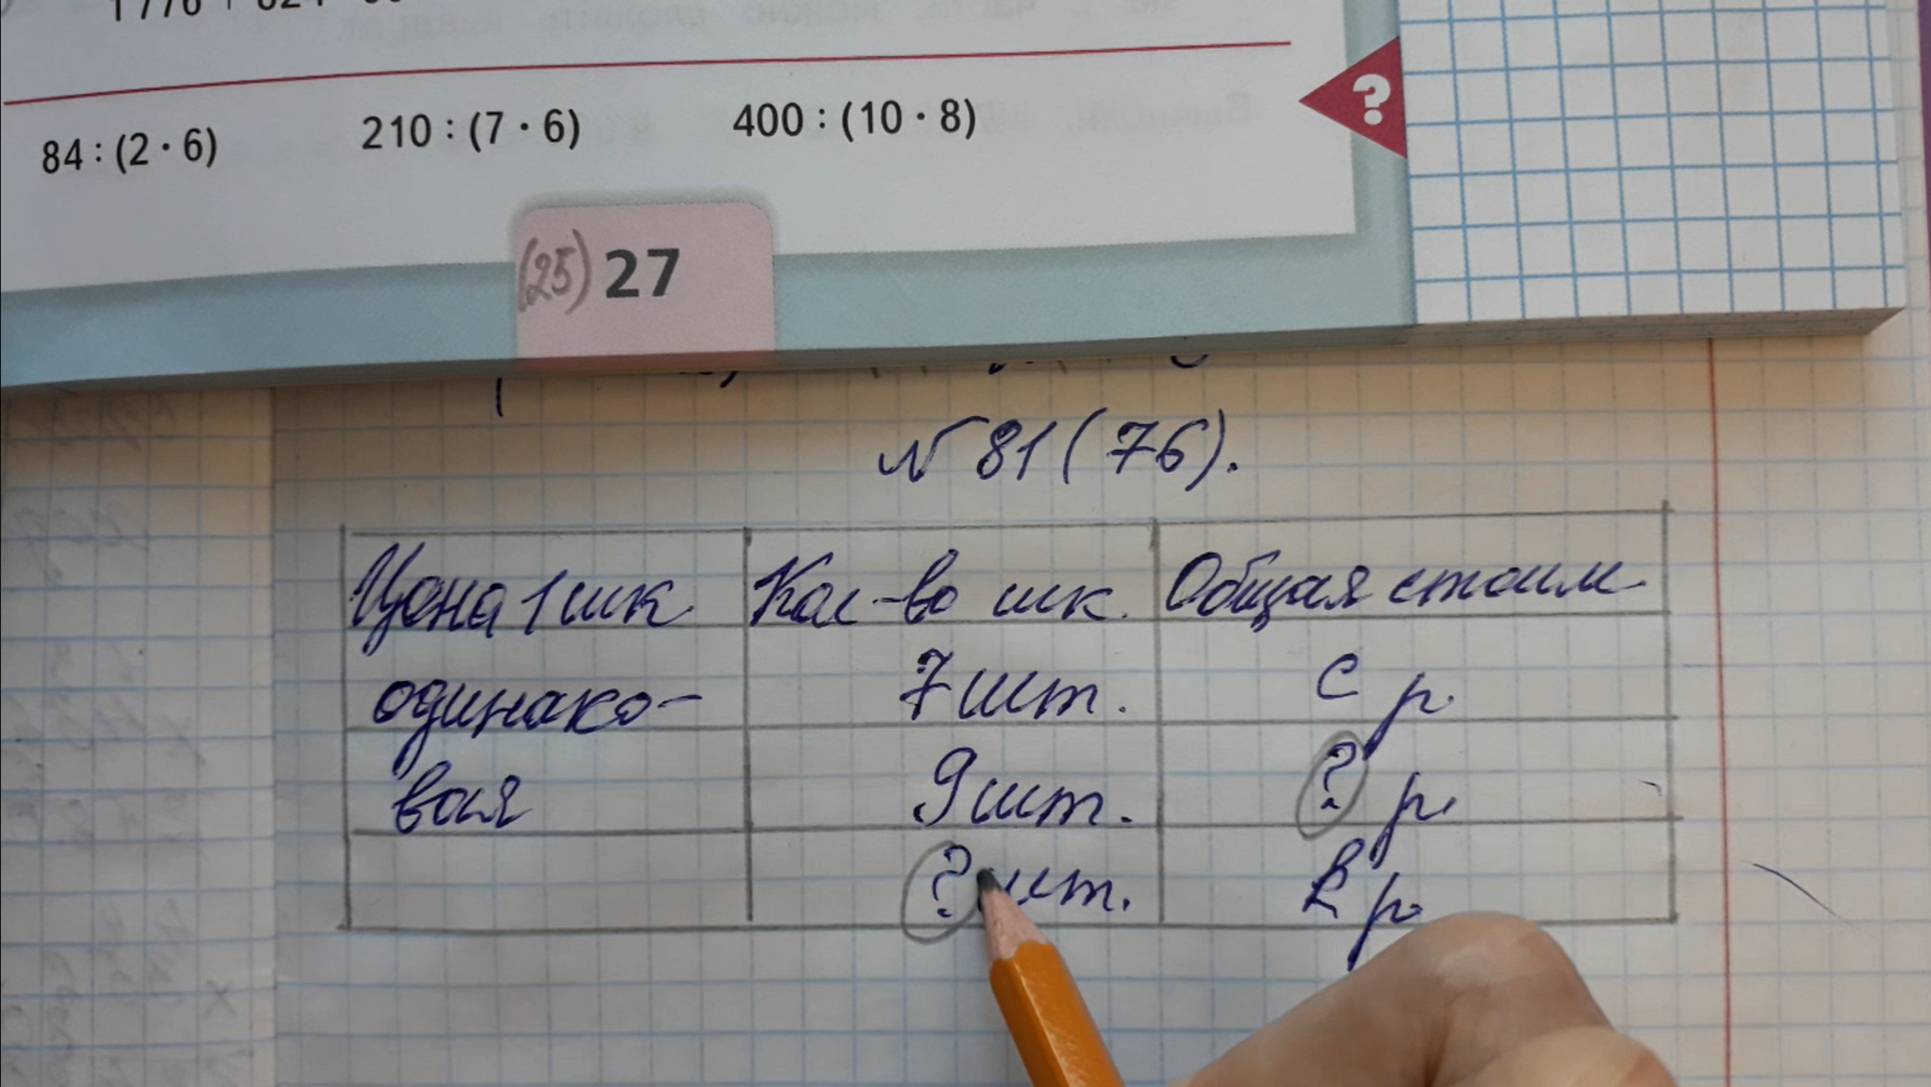 84 : (2 · 6) 210 : (7 · 6) 400 : (10 · 8)
?
(25) 27
№ 81 (76).
Цена 1 шк Кол-во шк. Общая стоим
одинако- 7 шт. с р.
вая 9 шт. ? р.
? шт. k р